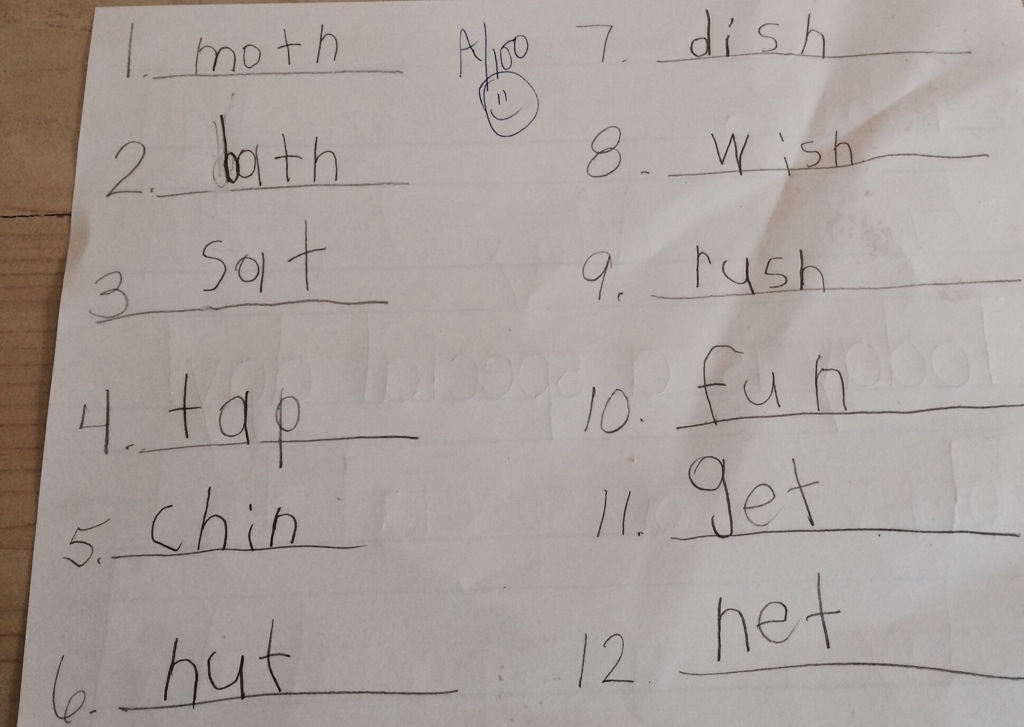 1. moth
2. bath
3 sat
4. tap
5. chin
6. hut
A/100
7. dish
8. wish
9. rush
10. fun
11. get
12. net